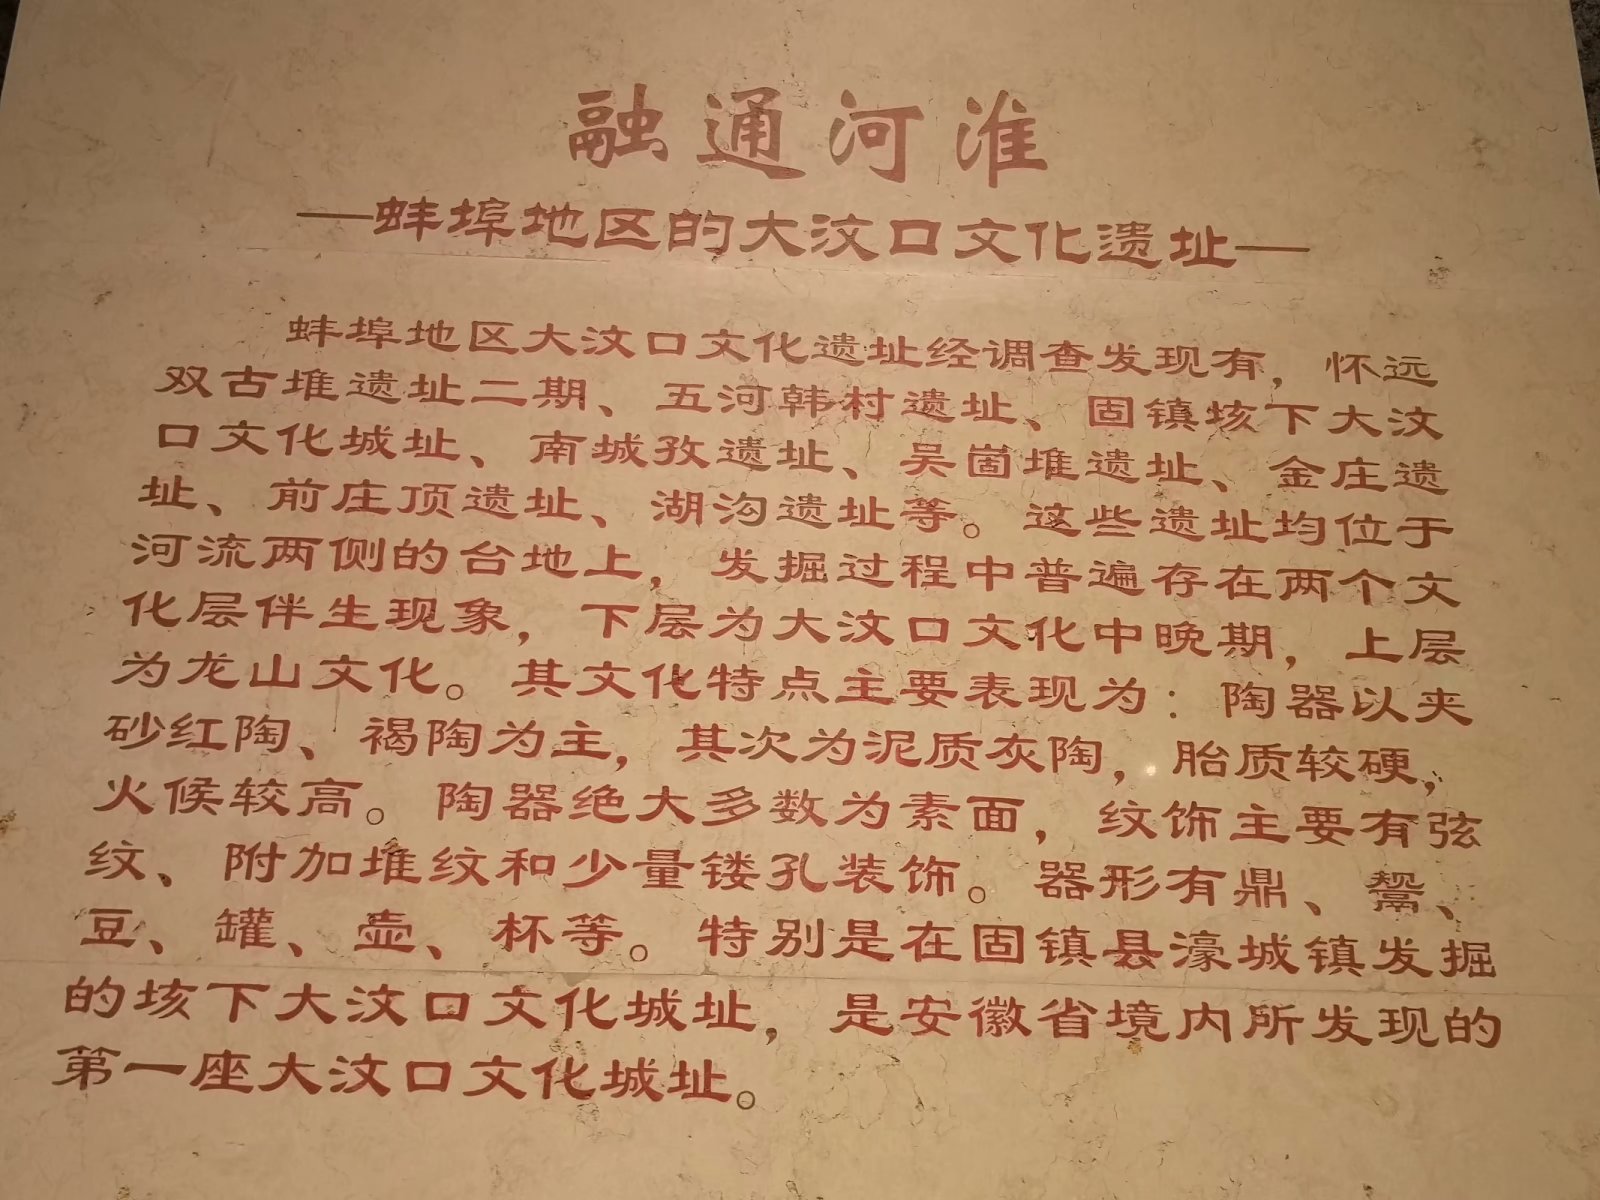 融通河淮
——蚌埠地区的大汶口文化遗址——
蚌埠地区大汶口文化遗址经调查发现有，怀远
双古堆遗址二期、五河韩村遗址、固镇垓下大汶
口文化城址、南城孜遗址、吴崮堆遗址、金庄遗
址、前庄顶遗址、湖沟遗址等。这些遗址均位于
河流两侧的台地上，发掘过程中普遍存在两个文
化层伴生现象，下层为大汶口文化中晚期，上层
为龙山文化。其文化特点主要表现为：陶器以夹
砂红陶、褐陶为主，其次为泥质灰陶，胎质较硬，
火候较高。陶器绝大多数为素面，纹饰主要有弦
纹、附加堆纹和少量镂孔装饰。器形有鼎、鬶、
豆、罐、壶、杯等。特别是在固镇县濠城镇发掘
的垓下大汶口文化城址，是安徽省境内所发现的
第一座大汶口文化城址。